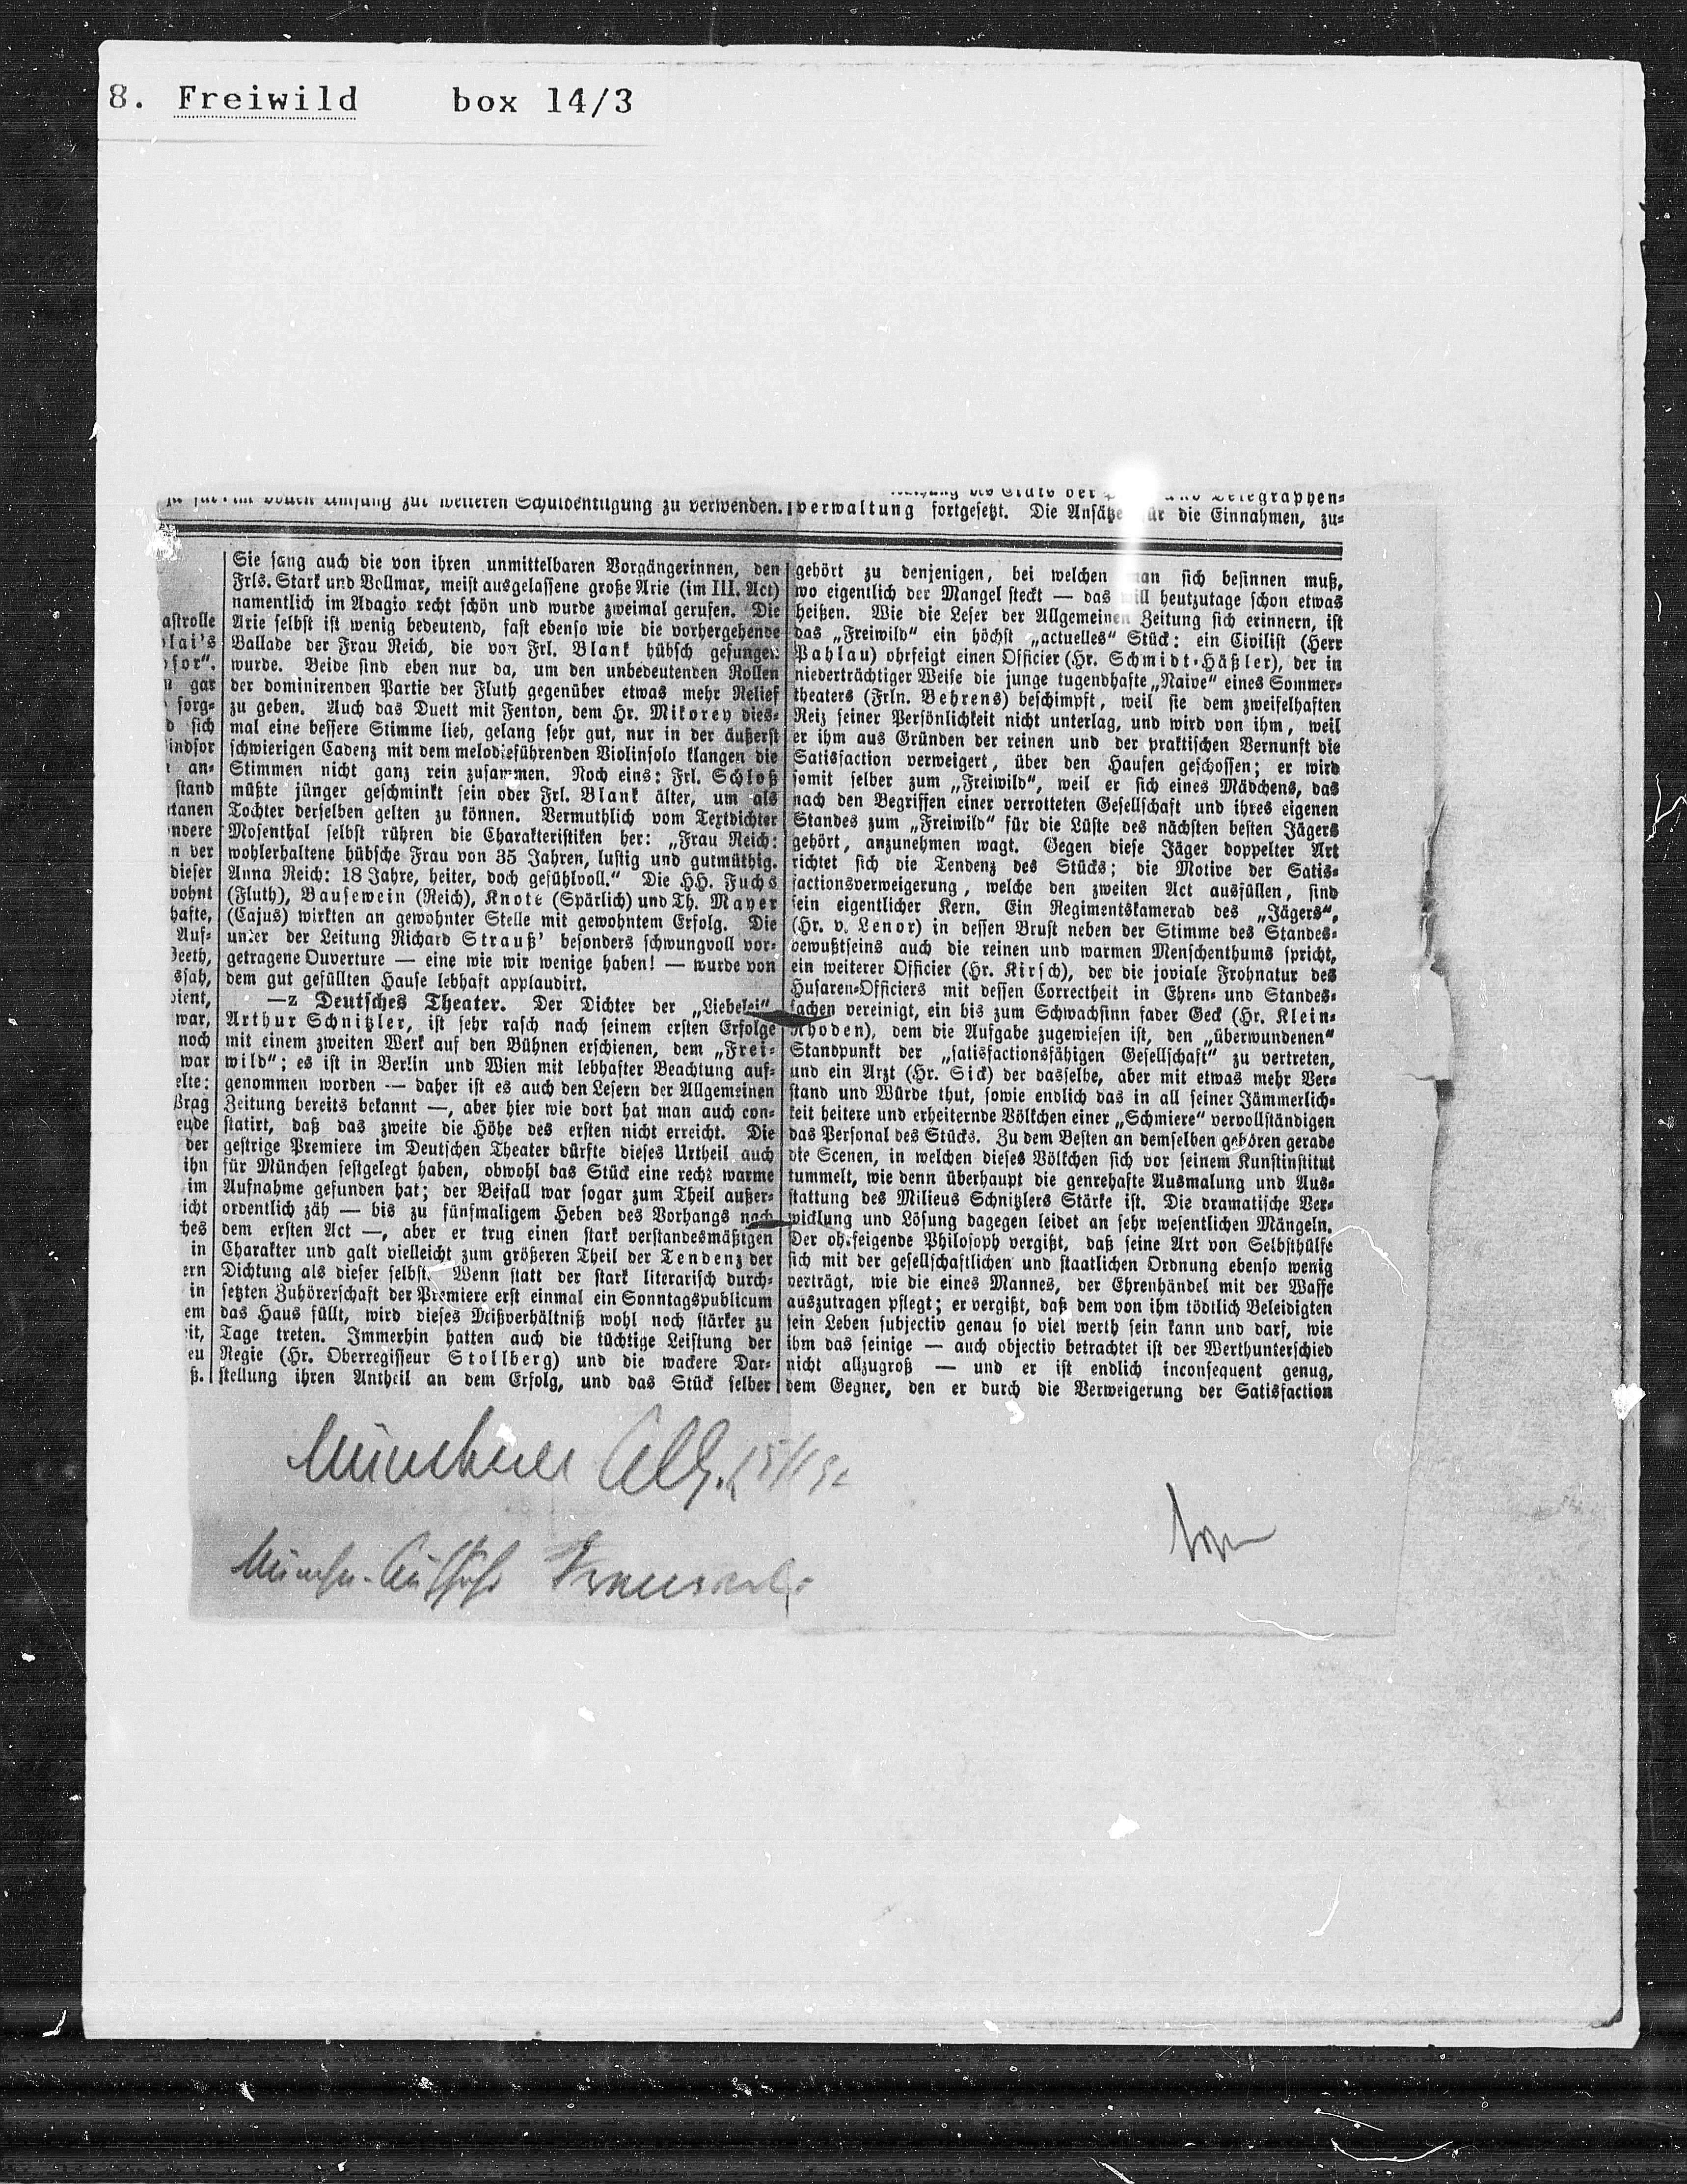 8. Freiwild box 14/3
im vollen Umfang zur weiteren Schuldentilgung zu verwenden.
Sie sang auch die von ihren unmittelbaren Vorgängerinnen, den
Frls. Stark und Vollmar, meist ausgelassene große Arie (im III. Act)
namentlich im Adagio recht schön und wurde zweimal gerufen. Die
Arie selbst ist wenig bedeutend, fast ebenso wie die vorhergehende
Ballade der Frau Reich, die von Frl. Blank hübsch gesungen
wurde. Beide sind eben nur da, um den unbedeutenden Rollen
der dominirenden Partie der Fluth gegenüber etwas mehr Relief
zu geben. Auch das Duett mit Fenton, dem Hr. Mikorey dies-
mal eine bessere Stimme lieh, gelang sehr gut, nur in der äußerst
schwierigen Cadenz mit dem melodieführenden Violinsolo klangen die
Stimmen nicht ganz rein zusammen. Noch eins: Frl. Schloß
müßte jünger geschminkt sein oder Frl. Blank älter, um als
Tochter derselben gelten zu können. Vermuthlich vom Textdichter
Mosenthal selbst rühren die Charakteristiken her: „Frau Reich:
wohlerhaltene hübsche Frau von 35 Jahren, lustig und gutmüthig.
Anna Reich: 18 Jahre, heiter, doch gefühlvoll.“ Die HH. Fuchs
(Fluth), Bausewein (Reich), Knote (Spärlich) und Th. Mayer
(Cajus) wirkten an gewohnter Stelle mit gewohntem Erfolg. Die
unter der Leitung Richard Strauß’ besonders schwungvoll vor-
getragene Ouverture — eine wie wir wenige haben! — wurde von
dem gut gefüllten Hause lebhaft applaudirt.
—z Deutsches Theater. Der Dichter der „Liebelei“
Arthur Schnitzler, ist sehr rasch nach seinem ersten Erfolge
mit einem zweiten Werk auf den Bühnen erschienen, dem „Frei-
wild“; es ist in Berlin und Wien mit lebhafter Beachtung auf-
genommen worden — daher ist es auch den Lesern der Allgemeinen
Zeitung bereits bekannt —, aber hier wie dort hat man auch con-
statirt, daß das zweite die Höhe des ersten nicht erreicht. Die
gestrige Premiere im Deutschen Theater dürfte dieses Urtheil auch
für München festgelegt haben, obwohl das Stück eine recht warme
Aufnahme gefunden hat; der Beifall war sogar zum Theil außer-
ordentlich zäh — bis zu fünfmaligem Heben des Vorhangs nach
dem ersten Act —, aber er trug einen stark verstandesmäßigen
Charakter und galt vielleicht zum größeren Theil der Tendenz der
Dichtung als dieser selbst. Wenn statt der stark literarisch durch-
setzten Zuhörerschaft der Premiere erst einmal ein Sonntagspublicum
das Haus füllt, wird dieses Mißverhältniß wohl noch stärker zu
Tage treten. Immerhin hatten auch die tüchtige Leistung der
Regie (Hr. Oberregisseur Stollberg) und die wackere Dar-
stellung ihren Antheil an dem Erfolg, und das Stück selber
Telegraphen-
verwaltung fortgesetzt. Die Ansätze für die Einnahmen, zu-
gehört zu denjenigen, bei welchen man sich besinnen muß,
wo eigentlich der Mangel steckt — das will heutzutage schon etwas
heißen. Wie die Leser der Allgemeinen Zeitung sich erinnern, ist
das „Freiwild“ ein höchst „actuelles“ Stück: ein Civilist (Herr
Pahlau) ohrfeigt einen Officier (Hr. Schmidt-Häßler), der in
niederträchtiger Weise die junge tugendhafte „Naive“ eines Sommer-
theaters (Frln. Behrens) beschimpft, weil sie dem zweifelhaften
Reiz seiner Persönlichkeit nicht unterlag, und wird von ihm, weil
er ihm aus Gründen der reinen und der praktischen Vernunft die
Satisfaction verweigert, über den Haufen geschossen; er wird
somit selber zum „Freiwild“, weil er sich eines Mädchens, das
nach den Begriffen einer verrotteten Gesellschaft und ihres eigenen
Standes zum „Freiwild“ für die Lüste des nächsten besten Jägers
gehört, anzunehmen wagt. Gegen diese Jäger doppelter Art
richtet sich die Tendenz des Stücks; die Motive der Satis-
factionsverweigerung, welche den zweiten Act ausfüllen, sind
sein eigentlicher Kern. Ein Regimentskamerad des „Jägers“,
(Hr. v. Lenor) in dessen Brust neben der Stimme des Standes-
bewußtseins auch die reinen und warmen Menschenthums spricht,
ein weiterer Officier (Hr. Kirsch), der die joviale Frohnatur des
Husaren-Officiers mit dessen Correctheit in Ehren- und Standes-
sachen vereinigt, ein bis zum Schwachsinn fader Geck (Hr. Klein-
Rhoden), dem die Aufgabe zugewiesen ist, den „überwundenen“
Standpunkt der „satisfactionsfähigen Gesellschaft“ zu vertreten,
und ein Arzt (Hr. Sick) der dasselbe, aber mit etwas mehr Ver-
stand und Würde thut, sowie endlich das in all seiner Jämmerlich-
keit heitere und erheiternde Völkchen einer „Schmiere“ vervollständigen
das Personal des Stücks. Zu dem Besten an demselben gehören gerade
die Scenen, in welchen dieses Völkchen sich vor seinem Kunstinstitut
tummelt, wie denn überhaupt die genrehafte Ausmalung und Aus-
stattung des Milieus Schnitzlers Stärke ist. Die dramatische Ver-
wicklung und Lösung dagegen leidet an sehr wesentlichen Mängeln.
Der ohrfeigende Philosoph vergißt, daß seine Art von Selbsthülfe
sich mit der gesellschaftlichen und staatlichen Ordnung ebenso wenig
verträgt, wie die eines Mannes, der Ehrenhändel mit der Waffe
auszutragen pflegt; er vergißt, daß dem von ihm tödtlich Beleidigten
sein Leben subjectiv genau so viel werth sein kann und darf, wie
ihm das seinige — auch objectiv betrachtet ist der Werthunterschied
nicht allzugroß — und er ist endlich inconsequent genug,
dem Gegner, den er durch die Verweigerung der Satisfaction
Münchner Allg.